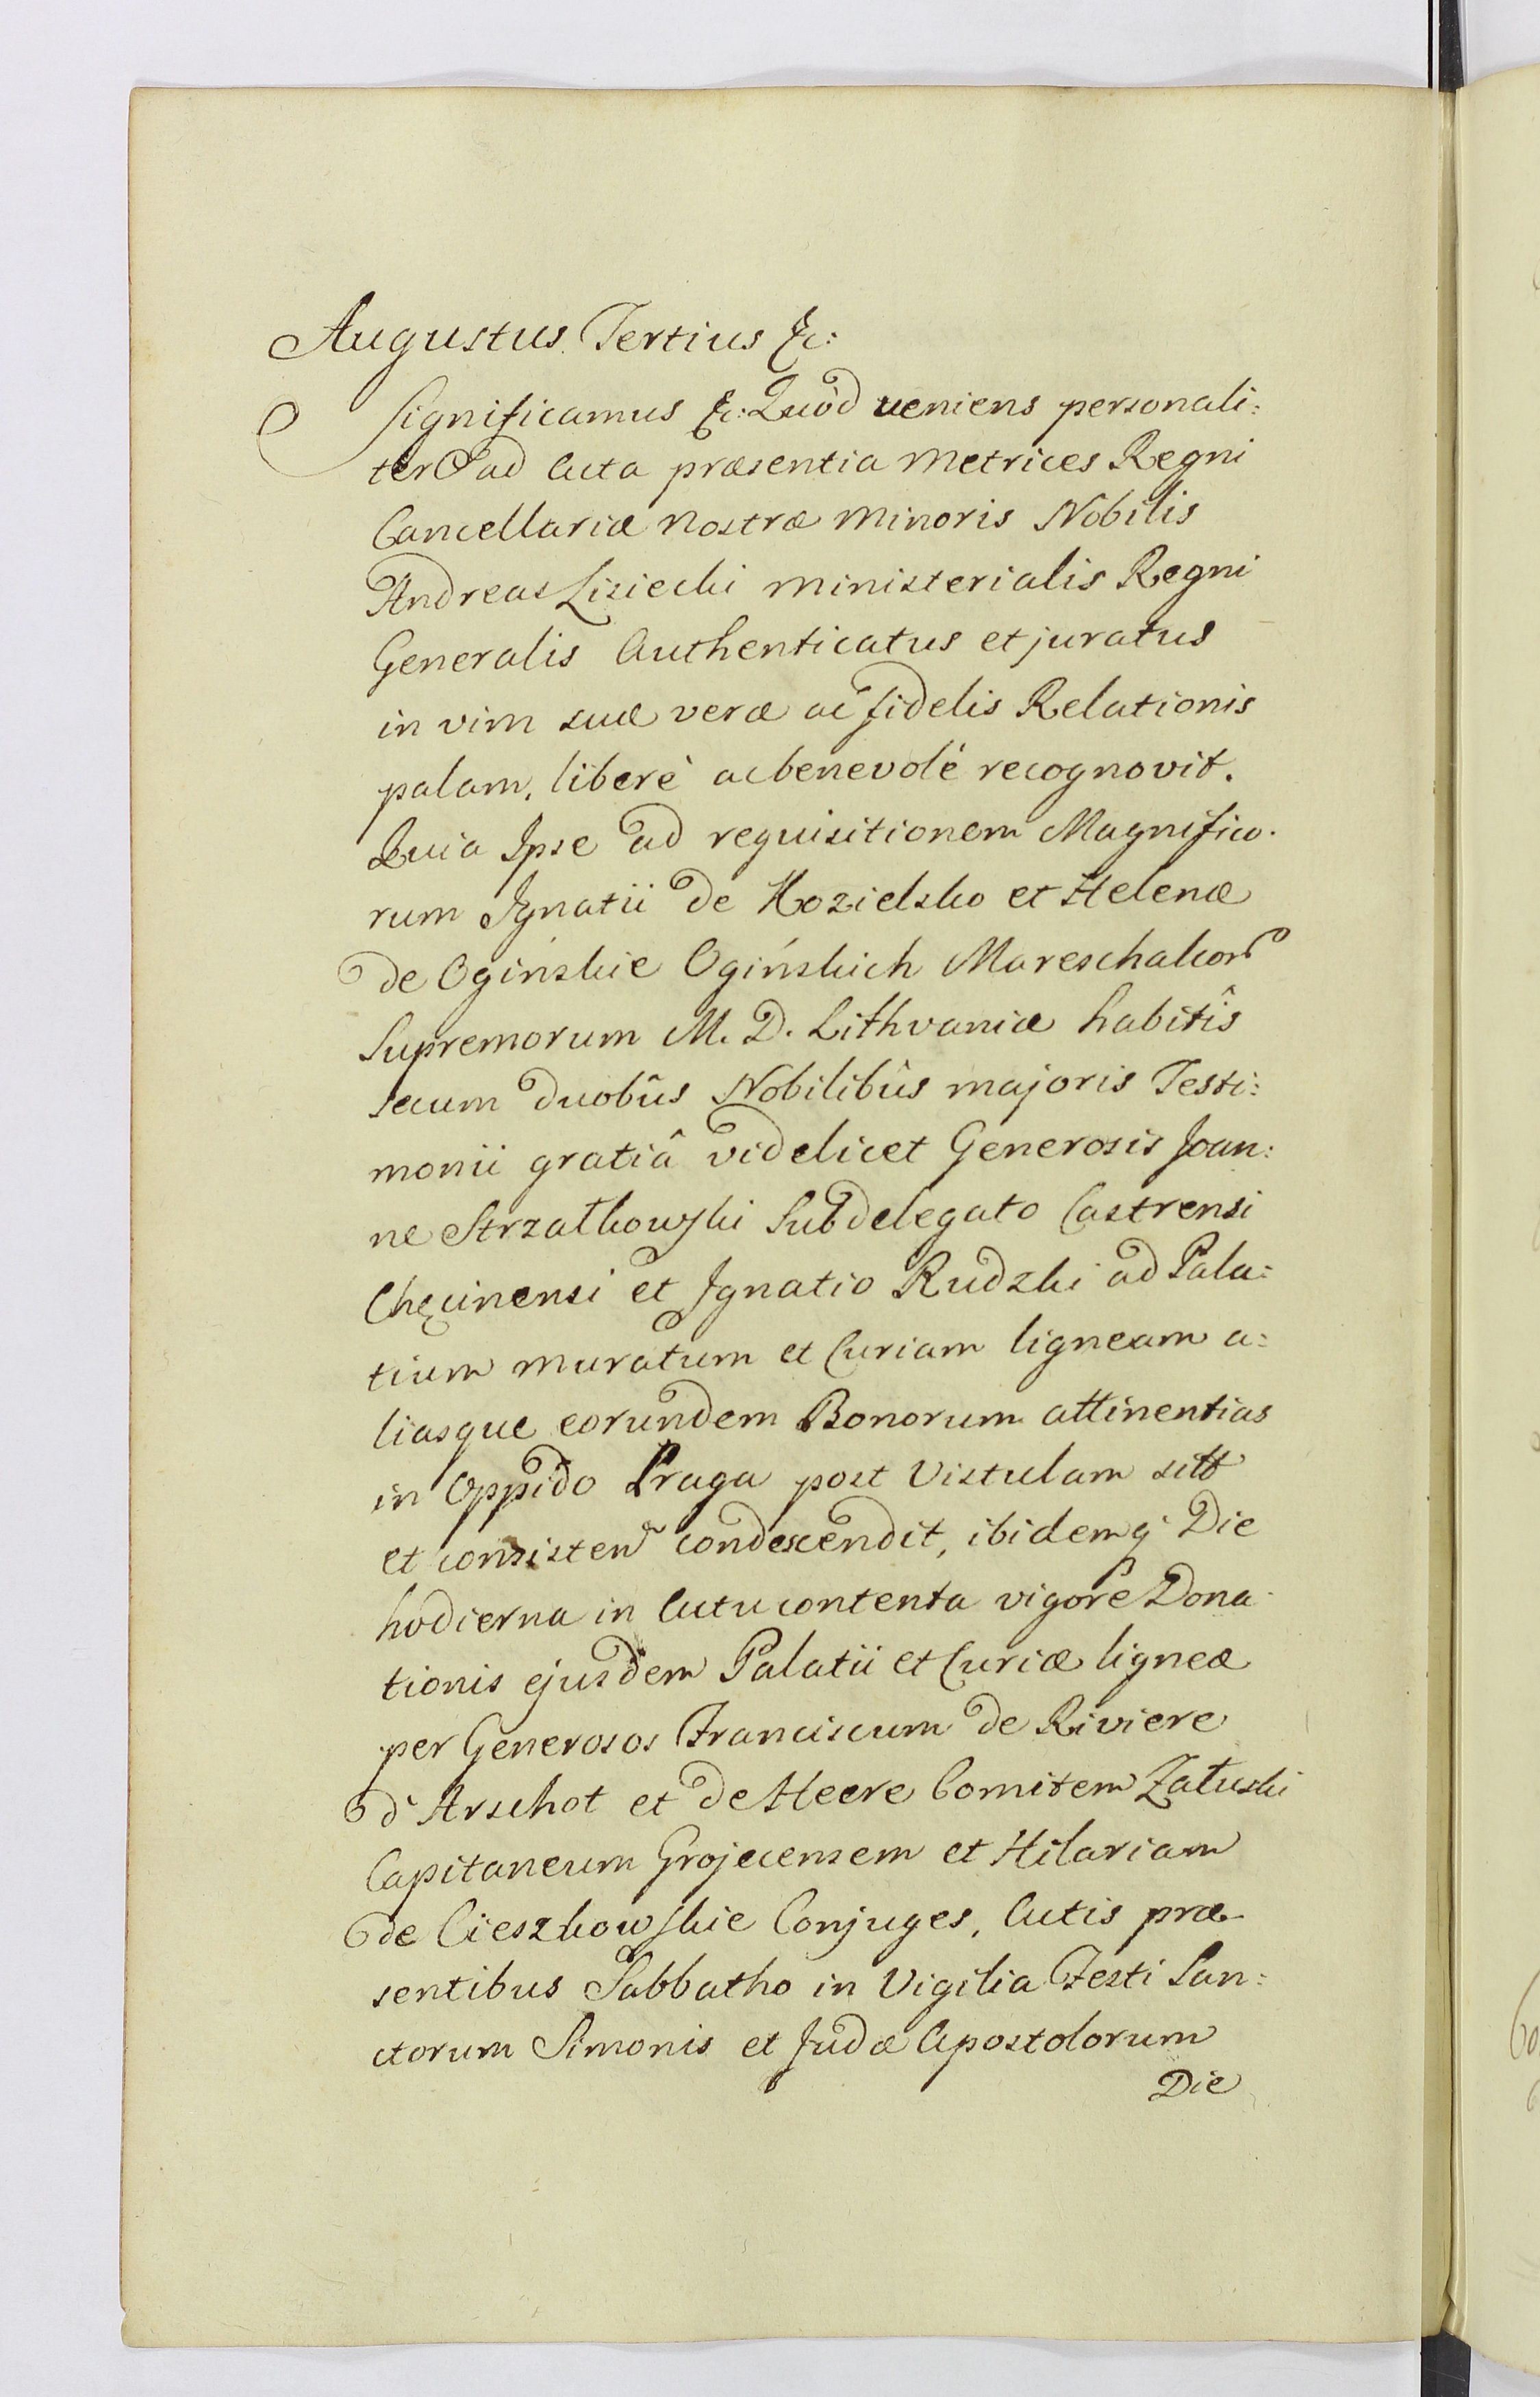 Augustus Tertius &c:
Significamus &c: Quòd veniens personali:
ter ad Acta præsentia Metrices Regni
Cancellariæ Nostræ Minoris Nobilis
Andreas Lisiecki Ministerialis Regni
Generalis Authenticatus et juratus
in vim suæ veræ ac fidelis Relationis
palam, liberè ac benevolè recognovit.
Quia Ipse ad requisitionem Magnifico-
rum Ignatii de Kozielsko et Helenæ
de Ogińskie Ogińskich Mareschalcor
Supremorum M. D. Lithvaniæ habitîs
secum duobûs Nobilibûs majoris Testi:
monii gratiâ videlicet Generosis Joan:
ne Strzałkowski Subdelegato Castrensi
Chęcinensi et Ignatio Rudzki ad Pala:
tium muratum et Curiam ligneam a:
liasque eorundem Bonorum attinentias
in Oppido Praga post Vistulam sitt
et consisten condescendit, ibidemq; Die
hodierna in Actu contenta vigore Dona-
tionis ejusdem Palatii et Curiæ ligneæ
per Generosos Franciscum de Riviere
d'Arschot et de Heere Comitem Załuski
Capitaneum Grojecensem et Hilariam
de Cieszkowskie Conjuges, Actis præ-
sentibus Sabbatho in Vigilia Festi San:
ctorum Simonis et Judæ Apostolorum
Die